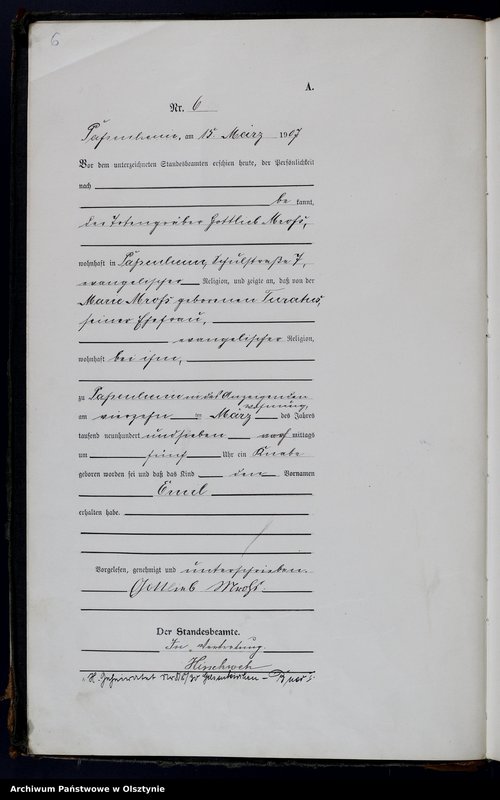 6
A.
Nr. 6
Passenheim, am 15. März 1907
Vor dem unterzeichneten Standesbeamten erschien heute, der Persönlichkeit
nach
be kannt,
der Totengräber Gottlieb Mroß,
wohnhaft in Passenheim, Schulstraße 7,
evangelischer Religion, und zeigte an, daß von der
Marie Mroß geborenen
seiner Ehefrau,
evangelischer Religion,
wohnhaft bei ihm,
zu Passenheim in des Anzeigenden
wohnung,
am vierzehn ten März des Jahres
tausend neunhundert und sieben nach mittags
um fünf Uhr ein Knabe
geboren worden sei und daß das Kind den Vornamen
Emil
erhalten habe.
Vorgelesen, genehmigt und unterschrieben.
Gottlieb Mroß.
Der Standesbeamte.
In Vertretung
Geheiratet Nr.
Archiwum Państwowe w Olsztynie